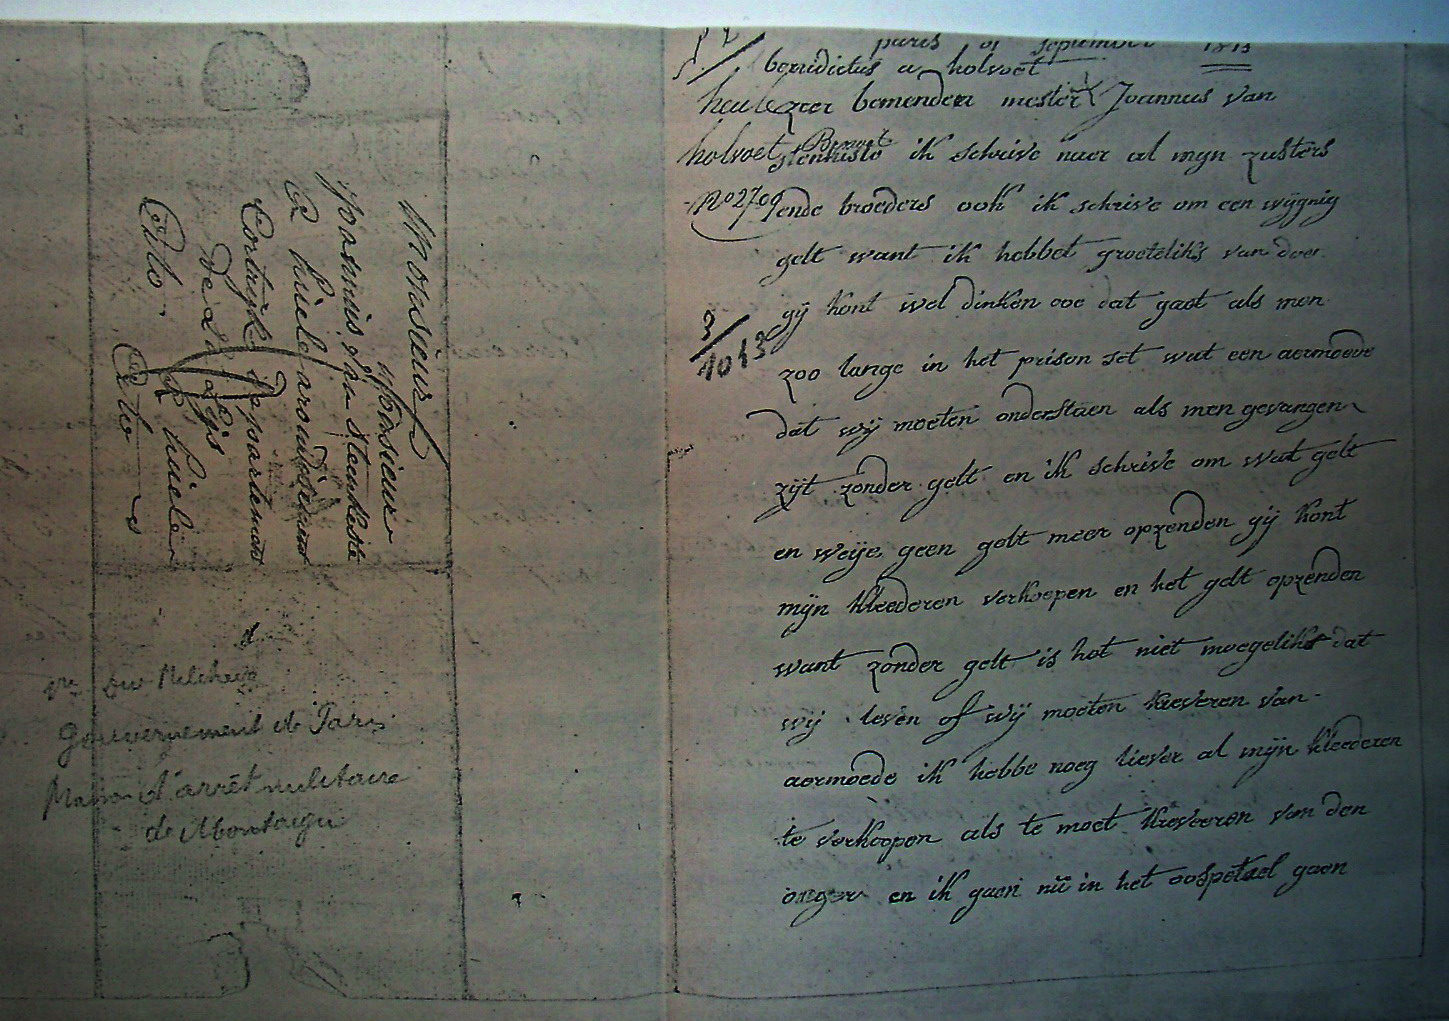 Monsieur
Monsieur
Joannis van Steenkiste
a huele arondisement
Cortrijke departement
De La Lijs
a huele
Cito Cito
Gouvernement de Paris
Maison d'arrêt militaire
de Montaigu
paris september 1813
benidictus a holvoet
heule
zeer bemenden mester Joannus van
holvoet
stenkiste ik schrive naer al mijn zusters
No 2709
ende broeders ook ik schrive om een wijgnig
gelt want ik hebbet groeteliks van doen
gij kont wel dinken ooe dat gaet als men
3/10 13
zoo lange in het prison set wat een aermoede
dat wij moeten onderstaen als men gevangen
zijt zonder gelt en ik schrive om wat gelt
en weije geen gelt meer opzenden gij kont
mijn kleederen verkoepen en het gelt opzenden
want zonder gelt is het niet moegeliks dat
wij leven of wij moeten kreveren van
aermoede ik hebbe noeg liever al mijn kleederen
te verkoopen als te moet kreveeren van den
onger en ik gaen nu in het oospetael gaen